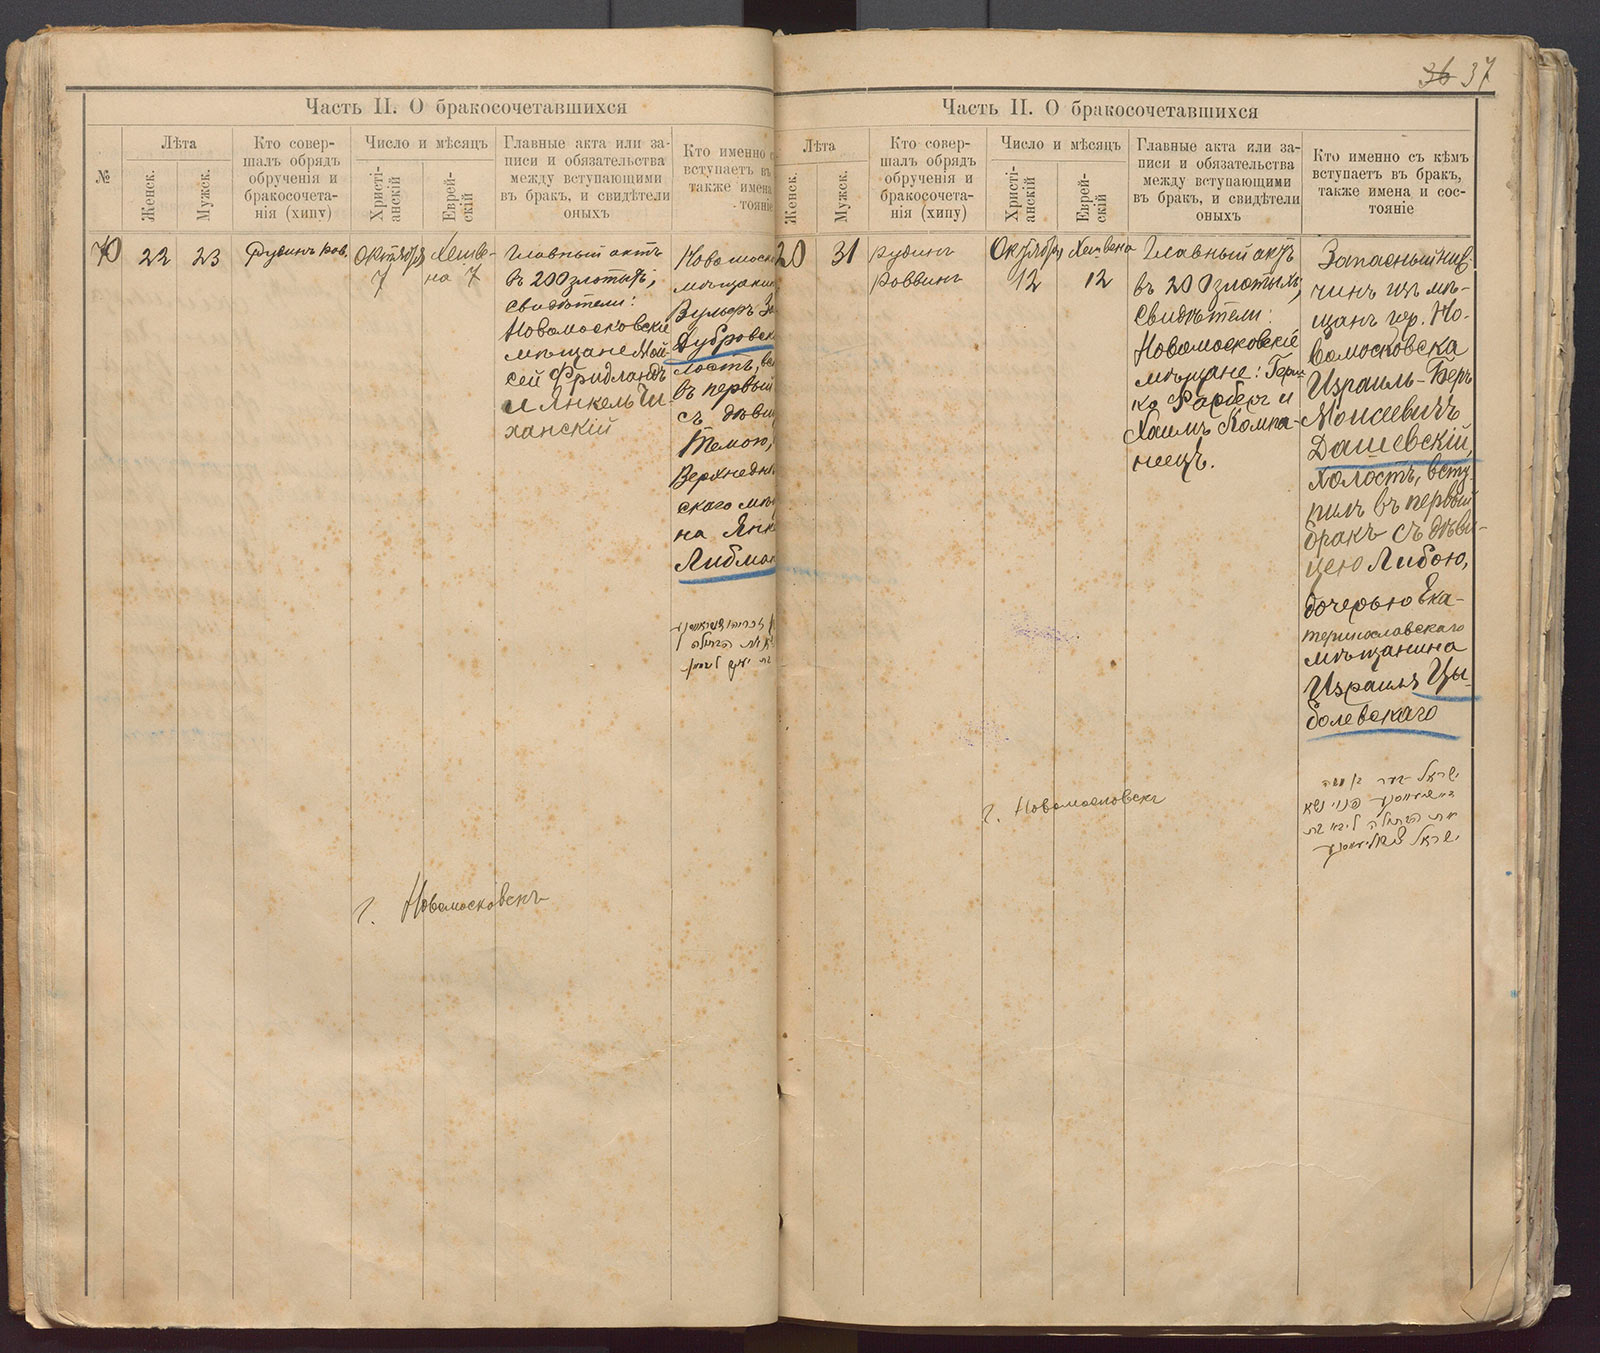 Часть II. О бракосочетавшихся
№
Лѣта
Женск.
Мужск.
Кто совер-
шалъ обрядъ
обрученія и
бракосочета-
нія (хипу)
Число и мѣсяцъ
Христі-
анскій
Еврей-
скій
Главные акта или за-
писи и обязательства
между вступающими
въ бракъ, и свидѣтели
оныхъ
Кто именно с
вступаетъ въ
также имена
тояніе
70
22
23
Рудинъ рав.
Октября
7
Хешве-
на 7
Главный актъ
въ 200 злотыхъ;
свидѣтели:
Новомосковскіе
мѣщане Мой-
сей Фридландъ
и Янкель Ши-
ханскій
Новомоск
мѣщанин
Вульфъ
Дубровск
лостъ,
въ первый
съ дѣви
Темою,
Верхнедн
скаго мѣщ
на Янк
Либман
г. Новомосковскъ
36 37
Часть II. О бракосочетавшихся
Лѣта
Женск.
Мужск.
Кто совер-
шалъ обрядъ
обрученія и
бракосочета-
нія (хипу)
Число и мѣсяцъ
Христі-
анскій
Еврей-
скій
Главные акта или за-
писи и обязательства
между вступающими
въ бракъ, и свидѣтели
оныхъ
Кто именно съ кѣмъ
вступаетъ въ бракъ,
также имена и сос-
тояніе
20
31
Рудинъ
Раввинъ
Октября
12
Хешвена
12
Главный актъ
въ 200 злотыхъ,
Свидѣтели:
Новомосковскіе
мѣщане: Герш-
ко Фарберъ и
Хаимъ Компа-
неецъ.
Запасный ниж.
чинъ изъ мѣ-
щанъ гор. Но-
вомосковска
Израиль-Беръ
Моисеевичъ
Дашевскій,
холостъ, всту-
пилъ въ первый
бракъ съ дѣви-
цею Либою,
дочерью Ека-
теринославскаго
мѣщанина
Израиля Цы-
болевскаго
ישראל בער בן משה
את הבתולה ליבא בת
ישראל
г. Новомосковскъ